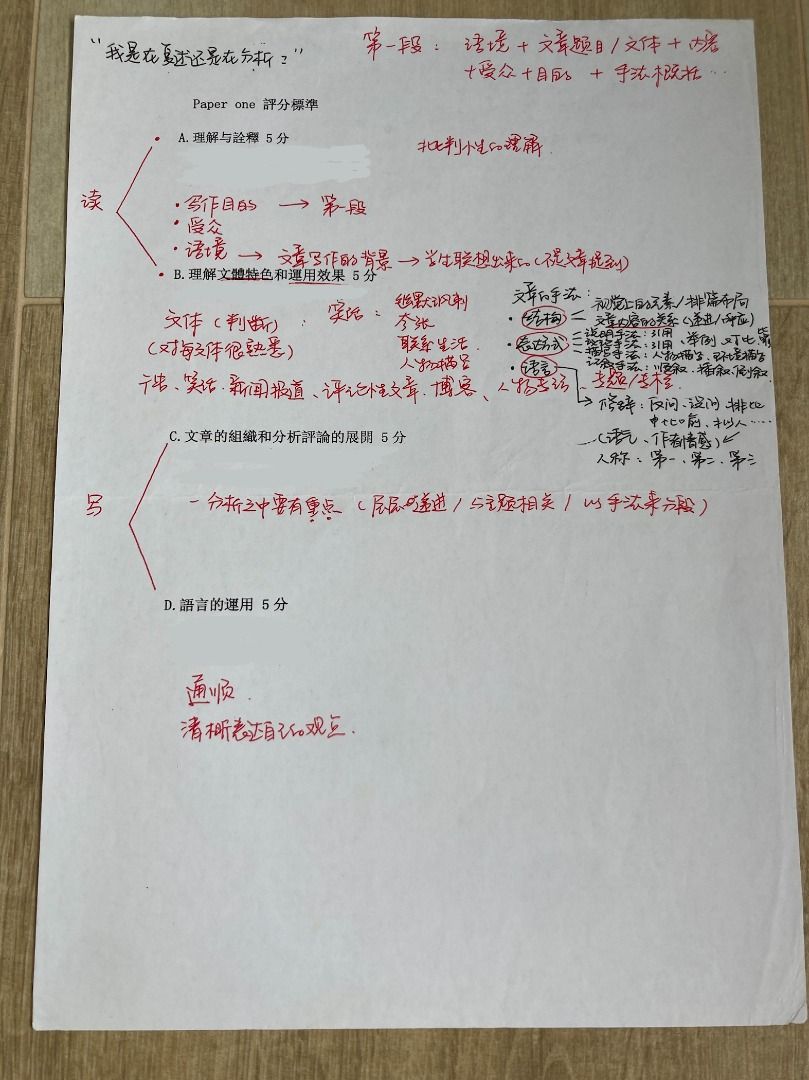 “我是在复述还是在分析？”
第一段： 语境 + 文章题目 / 文体 + 内容
+ 受众 + 目的 + 手法概括…
Paper one 評分標準
A.理解与詮釋 5 分
批判性的理解.
读
· 写作目的 → 第一段
· 受众
· 语境 → 文章写作的背景 → 学生联想出来的(不是文章提到)
B.理解文體特色和運用效果 5 分
文体（判断）：
(对每文体很熟悉)
笑话：幽默讽刺
夸张
联系生活
人物描写
文章的手法：
· 结构 视觉上的元素 / 排篇布局
文章内容的关系(递进/呼应)
· 表达方式 说明手法：引用
引用、举例、对比
描写手法：人物描写、环境描写
记叙手法：顺叙、插叙、倒叙
· 语言
修辞：反问、设问、排比
比喻、拟人……
(语气、作者情感)
人称：第一、第二、第三
广告、笑话、新闻报道、评论性文章、博客、人物专访、专题/专栏
C.文章的組織和分析評論的展開 5 分
写
- 分析之中要有重点 (层层递进 / 与主题相关 / 以手法来分段)
D.語言的運用 5 分
通顺.
清晰表达自己的观点.